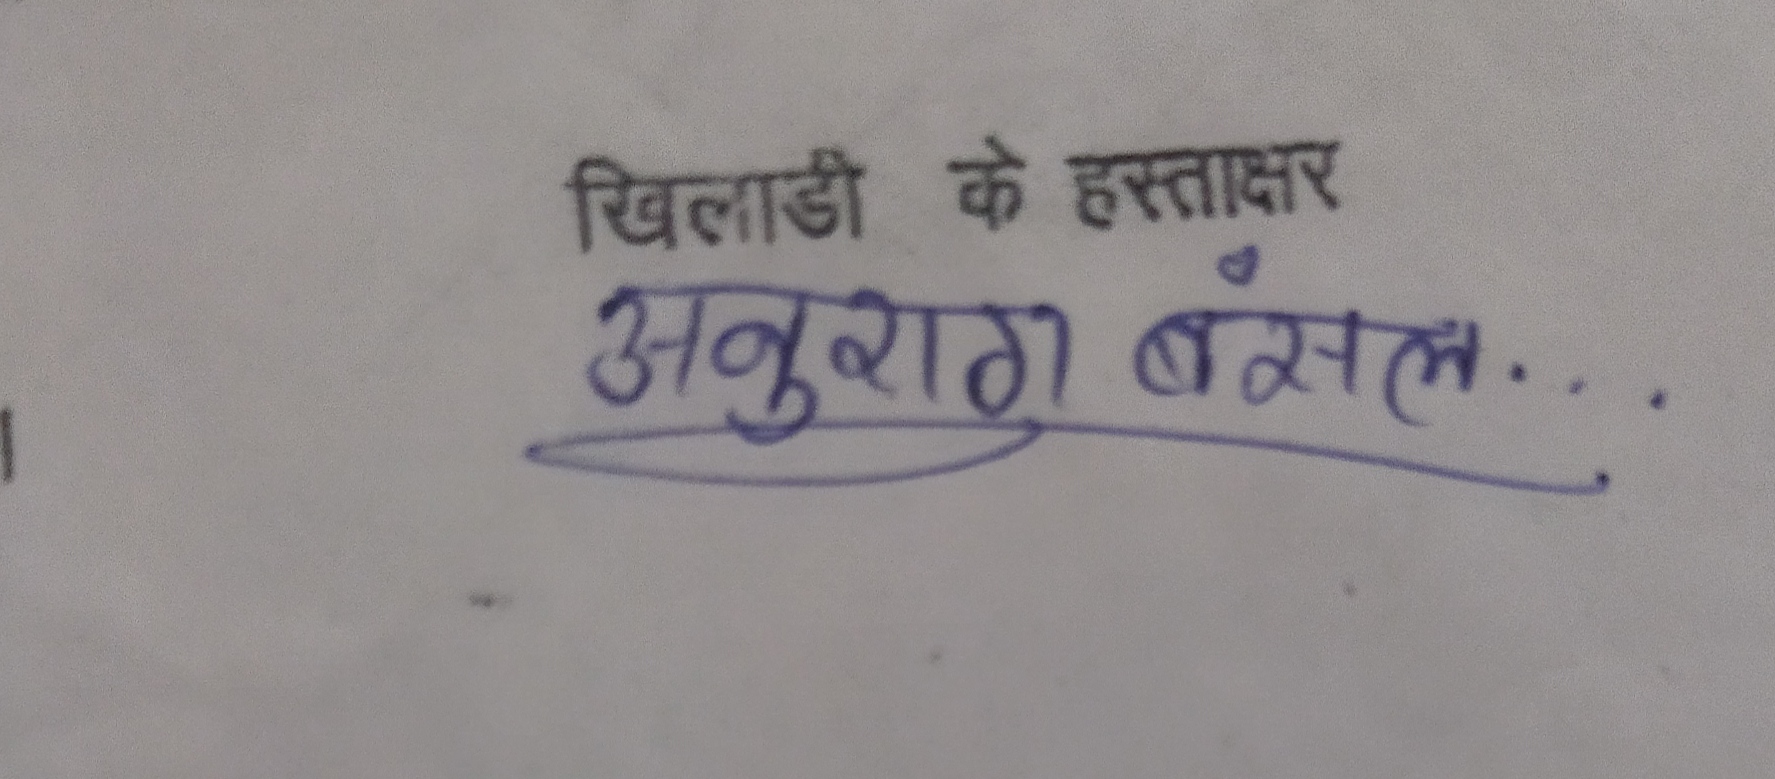 खिलाडी के हस्ताक्षर
अनुराग बंसल...